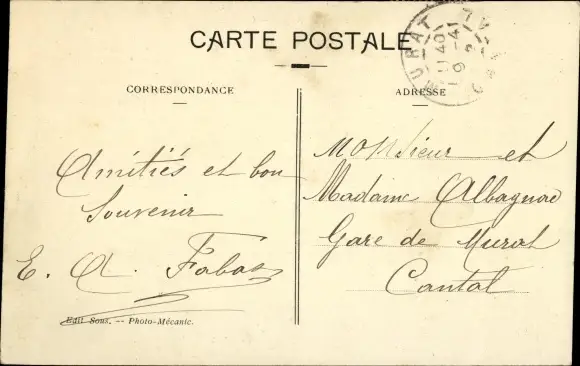 CARTE POSTALE
CORRESPONDANCE
ADRESSE
Amitiés et bon
Souvenir
E. A. Fabas
Monsieur et
Madame Albagnac
Gare de Murat
Cantal
Edit Sous. — Photo-Mécanic.
MURAT